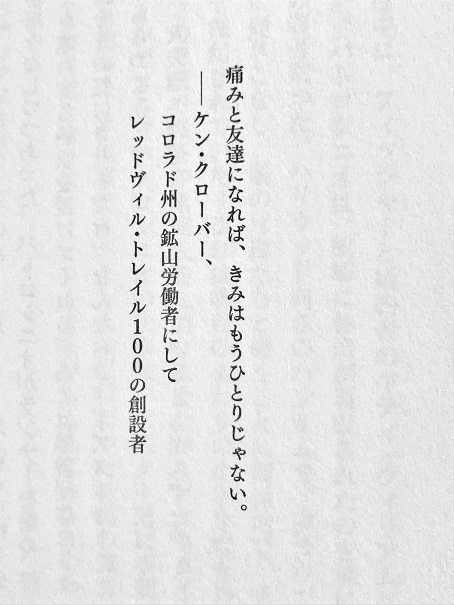 痛みと友達になれば、きみはもうひとりじゃない。
――ケン・クローバー、
コロラド州の鉱山労働者にして
レッドヴィル・トレイル100の創設者